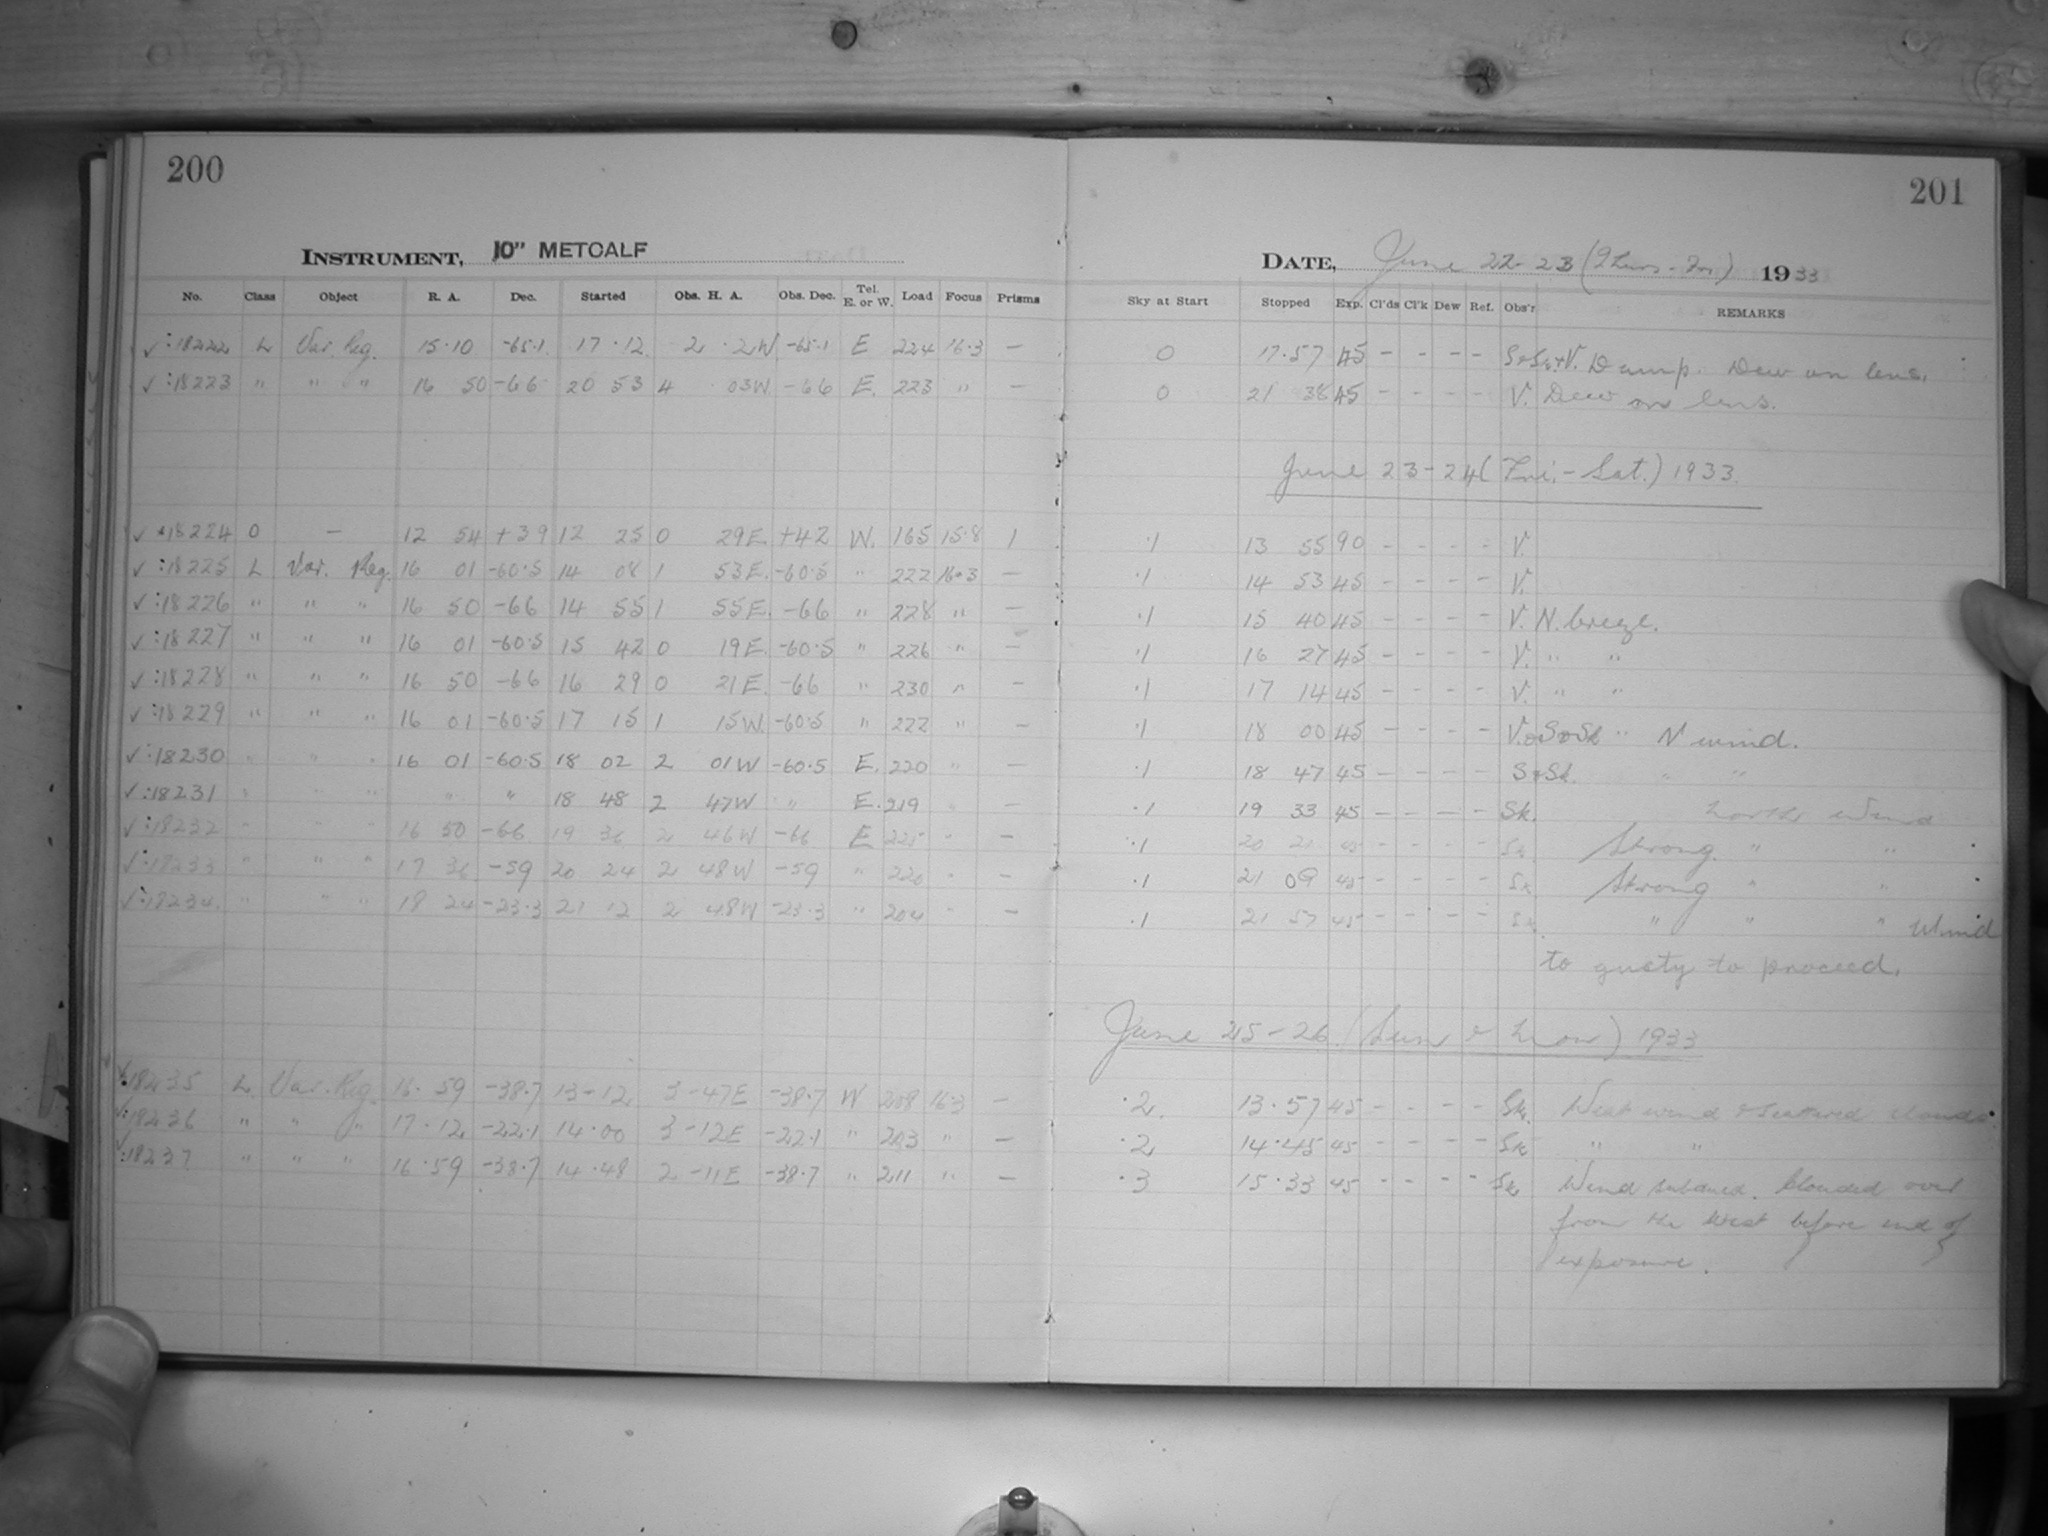 200
201
INSTRUMENT, 10" METCALF
DATE, June 22-23 (Thurs-Fri) 1933
No. Class Object R. A. Dec. Started Obs. H. A. Obs. Dec. Tel. E. or W. Load Focus Prisms Sky at Start Stopped Exp. Cl'ds Cl'k Dew Ref. Obs'r REMARKS
✓ :18222 L Var. Reg. 15·10 -65.1 17·12 2·2W -65.1 E 224 16·3 — 0 17·57 45 - - - - Damp. Dew on lens.
✓ :18223 " " " 16 50 -66 20 53 4 03W -66 E. 223 " — 0 21 38 45 - - - - V. Dew on lens.
June 23-24 (Fri.-Sat.) 1933.
✓ 18224 O — 12 54 +39 12 25 0 29E. +42 W. 165 15·8 1 ·1 13 55 90 - - - - V.
✓ :18225 L Var. Reg. 16 01 -60·5 14 08 1 53E. -60·5 " 222 16·3 — ·1 14 53 45 - - - - V.
✓ :18226 " " " 16 50 -66 14 55 1 55E. -66 " 228 " — ·1 15 40 45 - - - - V. N. breeze.
✓ :18227 " " " 16 01 -60·5 15 42 0 19E. -60·5 " 226 " — ·1 16 27 45 - - - - V. " "
✓ :18228 " " " 16 50 -66 16 29 0 21E. -66 " 230 " — ·1 17 14 45 - - - - V. " "
✓ :18229 " " " 16 01 -60·5 17 15 1 15W. -60·5 " 222 " — ·1 18 00 45 - - - - " N wind.
✓ :18230 " " " 16 01 -60·5 18 02 2 01W -60·5 E. 220 " — ·1 18 47 45 - - - - " "
✓ :18231 " " " " " 18 48 2 47W " E. 219 " — ·1 19 33 45 - - - - Sk. North Wind
✓ :18232 " " " 16 50 -66 19 36 2 46W -66 E 225 " — ·1 20 21 45 - - - - Sk Strong " "
✓ :18233 " " " 17 36 -59 20 24 2 48W -59 " 220 " — ·1 21 09 45 - - - - Sk Strong " "
✓ :18234. " " 18 24 -23·3 21 12 2 48W -23·3 " 204 " — ·1 21 57 45 - - - - Sk " " " Wind
to gusty to proceed.
June 25-26 (Sun & Mon) 1933
✓ :18235 L Var. Reg. 16·59 -38·7 13-12 3-47E -38·7 W 208 16·3 — ·2 13·57 45 - - - - Sk. West wind & scattered clouds.
✓ :18236 " " " 17·12 -22·1 14·00 3-12E -22·1 " 203 " — ·2 14·45 45 - - - - Sk " "
✓ :18237 " " " 16·59 -38·7 14·48 2-11E -38·7 " 211 " — ·3 15·33 45 - - - - Sk Wind subdued. Clouded over
from the West before end of
exposure.